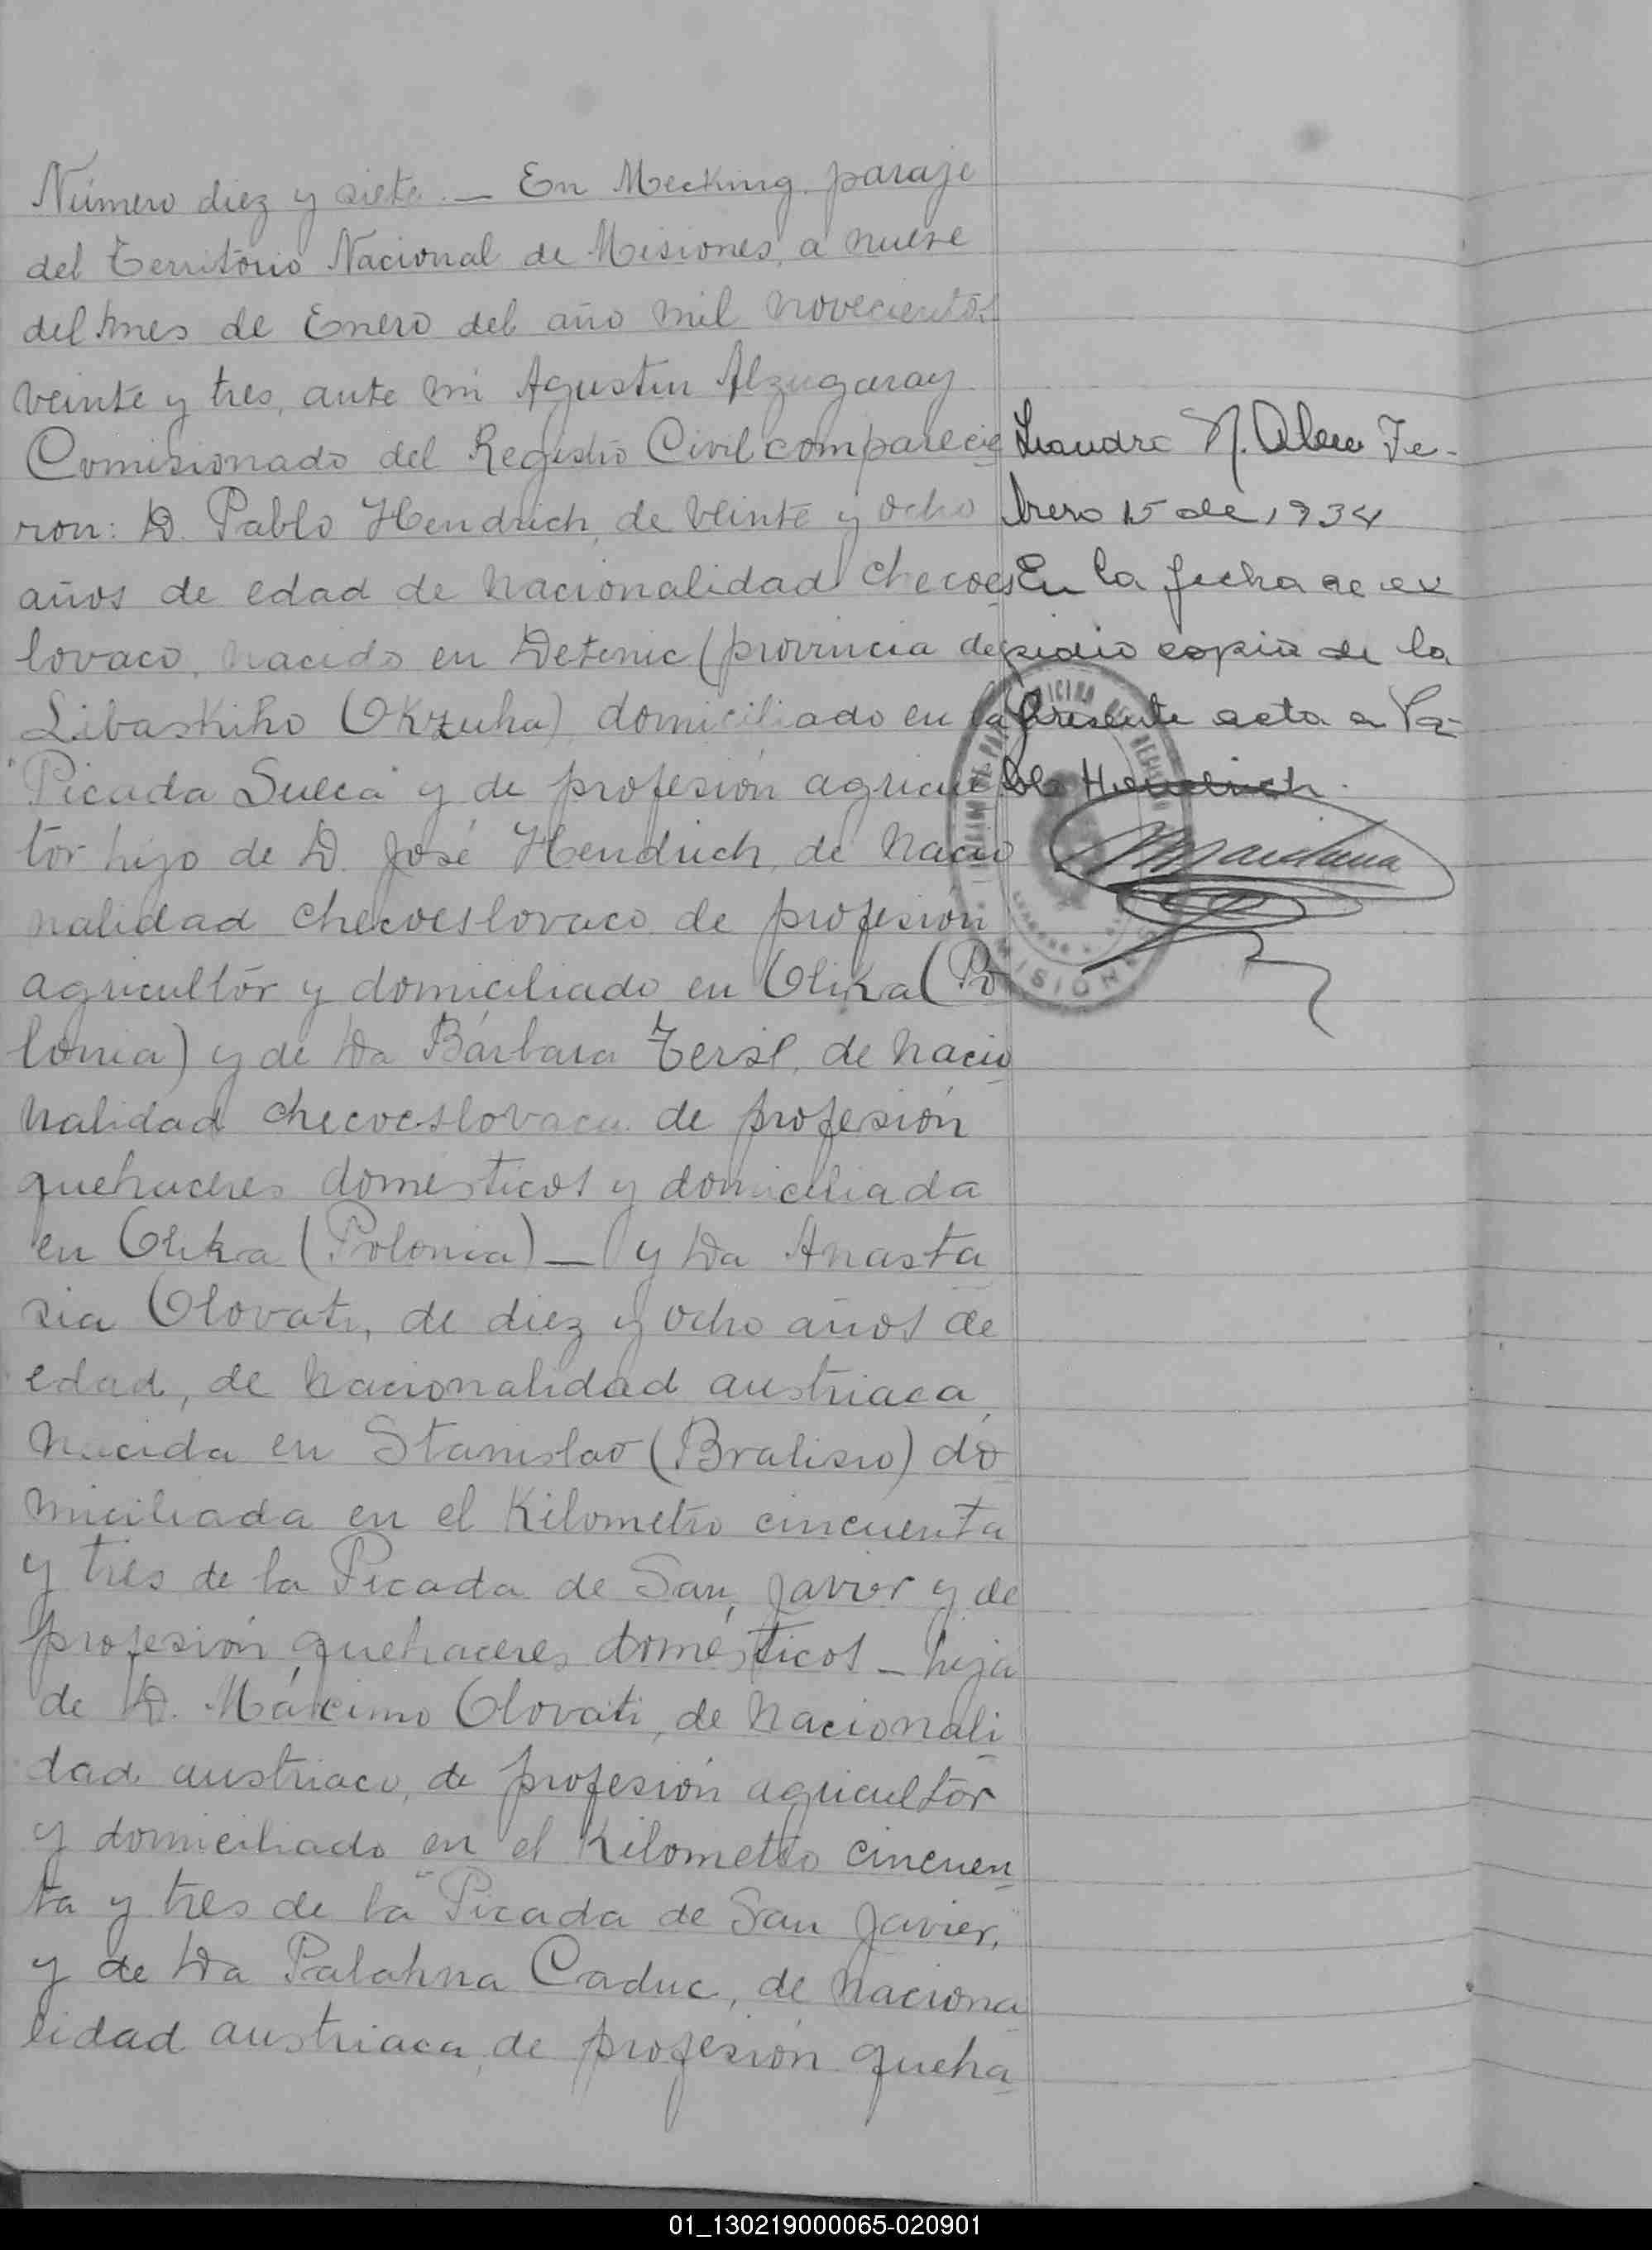 Número diez y siete. — En Mecking paraje
del Territorio Nacional de Misiones, a nueve
del mes de Enero del año mil novecientos
veinte y tres, ante mi Agustin Alzugaray
Comisionado del Registro Civil comparecie
ron: D. Pablo Hendrich, de veinte y ocho
años de edad de nacionalidad checoes
lovaco, nacido en Detenic (provincia de
Libaskiho (Okzuha) domiciliado en la
"Picada Sueca" y de profesión agricul
tor hijo de D. José Hendrich, de nacio
nalidad checoeslovaco de profesión
agricultor y domiciliado en Olika (Po
lonia) y de Da Bárbara Tersl, de nacio
nalidad checoeslovaca de profesión
quehaceres domésticos y domiciliada
en Olika (Polonia) — y Da Anasta
sia Olovati, de diez y ocho años de
edad, de nacionalidad austriaca,
nacida en Stanislao (Bralisio) do
miciliada en el Kilometro cincuenta
y tres de la Picada de San Javier y de
profesión quehaceres domésticos — hija
de D. Máximo Olovati, de nacionali
dad austriaco, de profesión agricultor
y domiciliado en el Kilometro cincuen
ta y tres de la "Picada de San Javier,"
y de Da Palahna Caduc, de naciona
lidad austriaca, de profesión queha
Leandro N. Alem Fe-
brero 15 de 1934
En la fecha se ex
pidio copia de la
presente acta a Pa-
blo Hendrich.
MISIONES
01_130219000065-020901